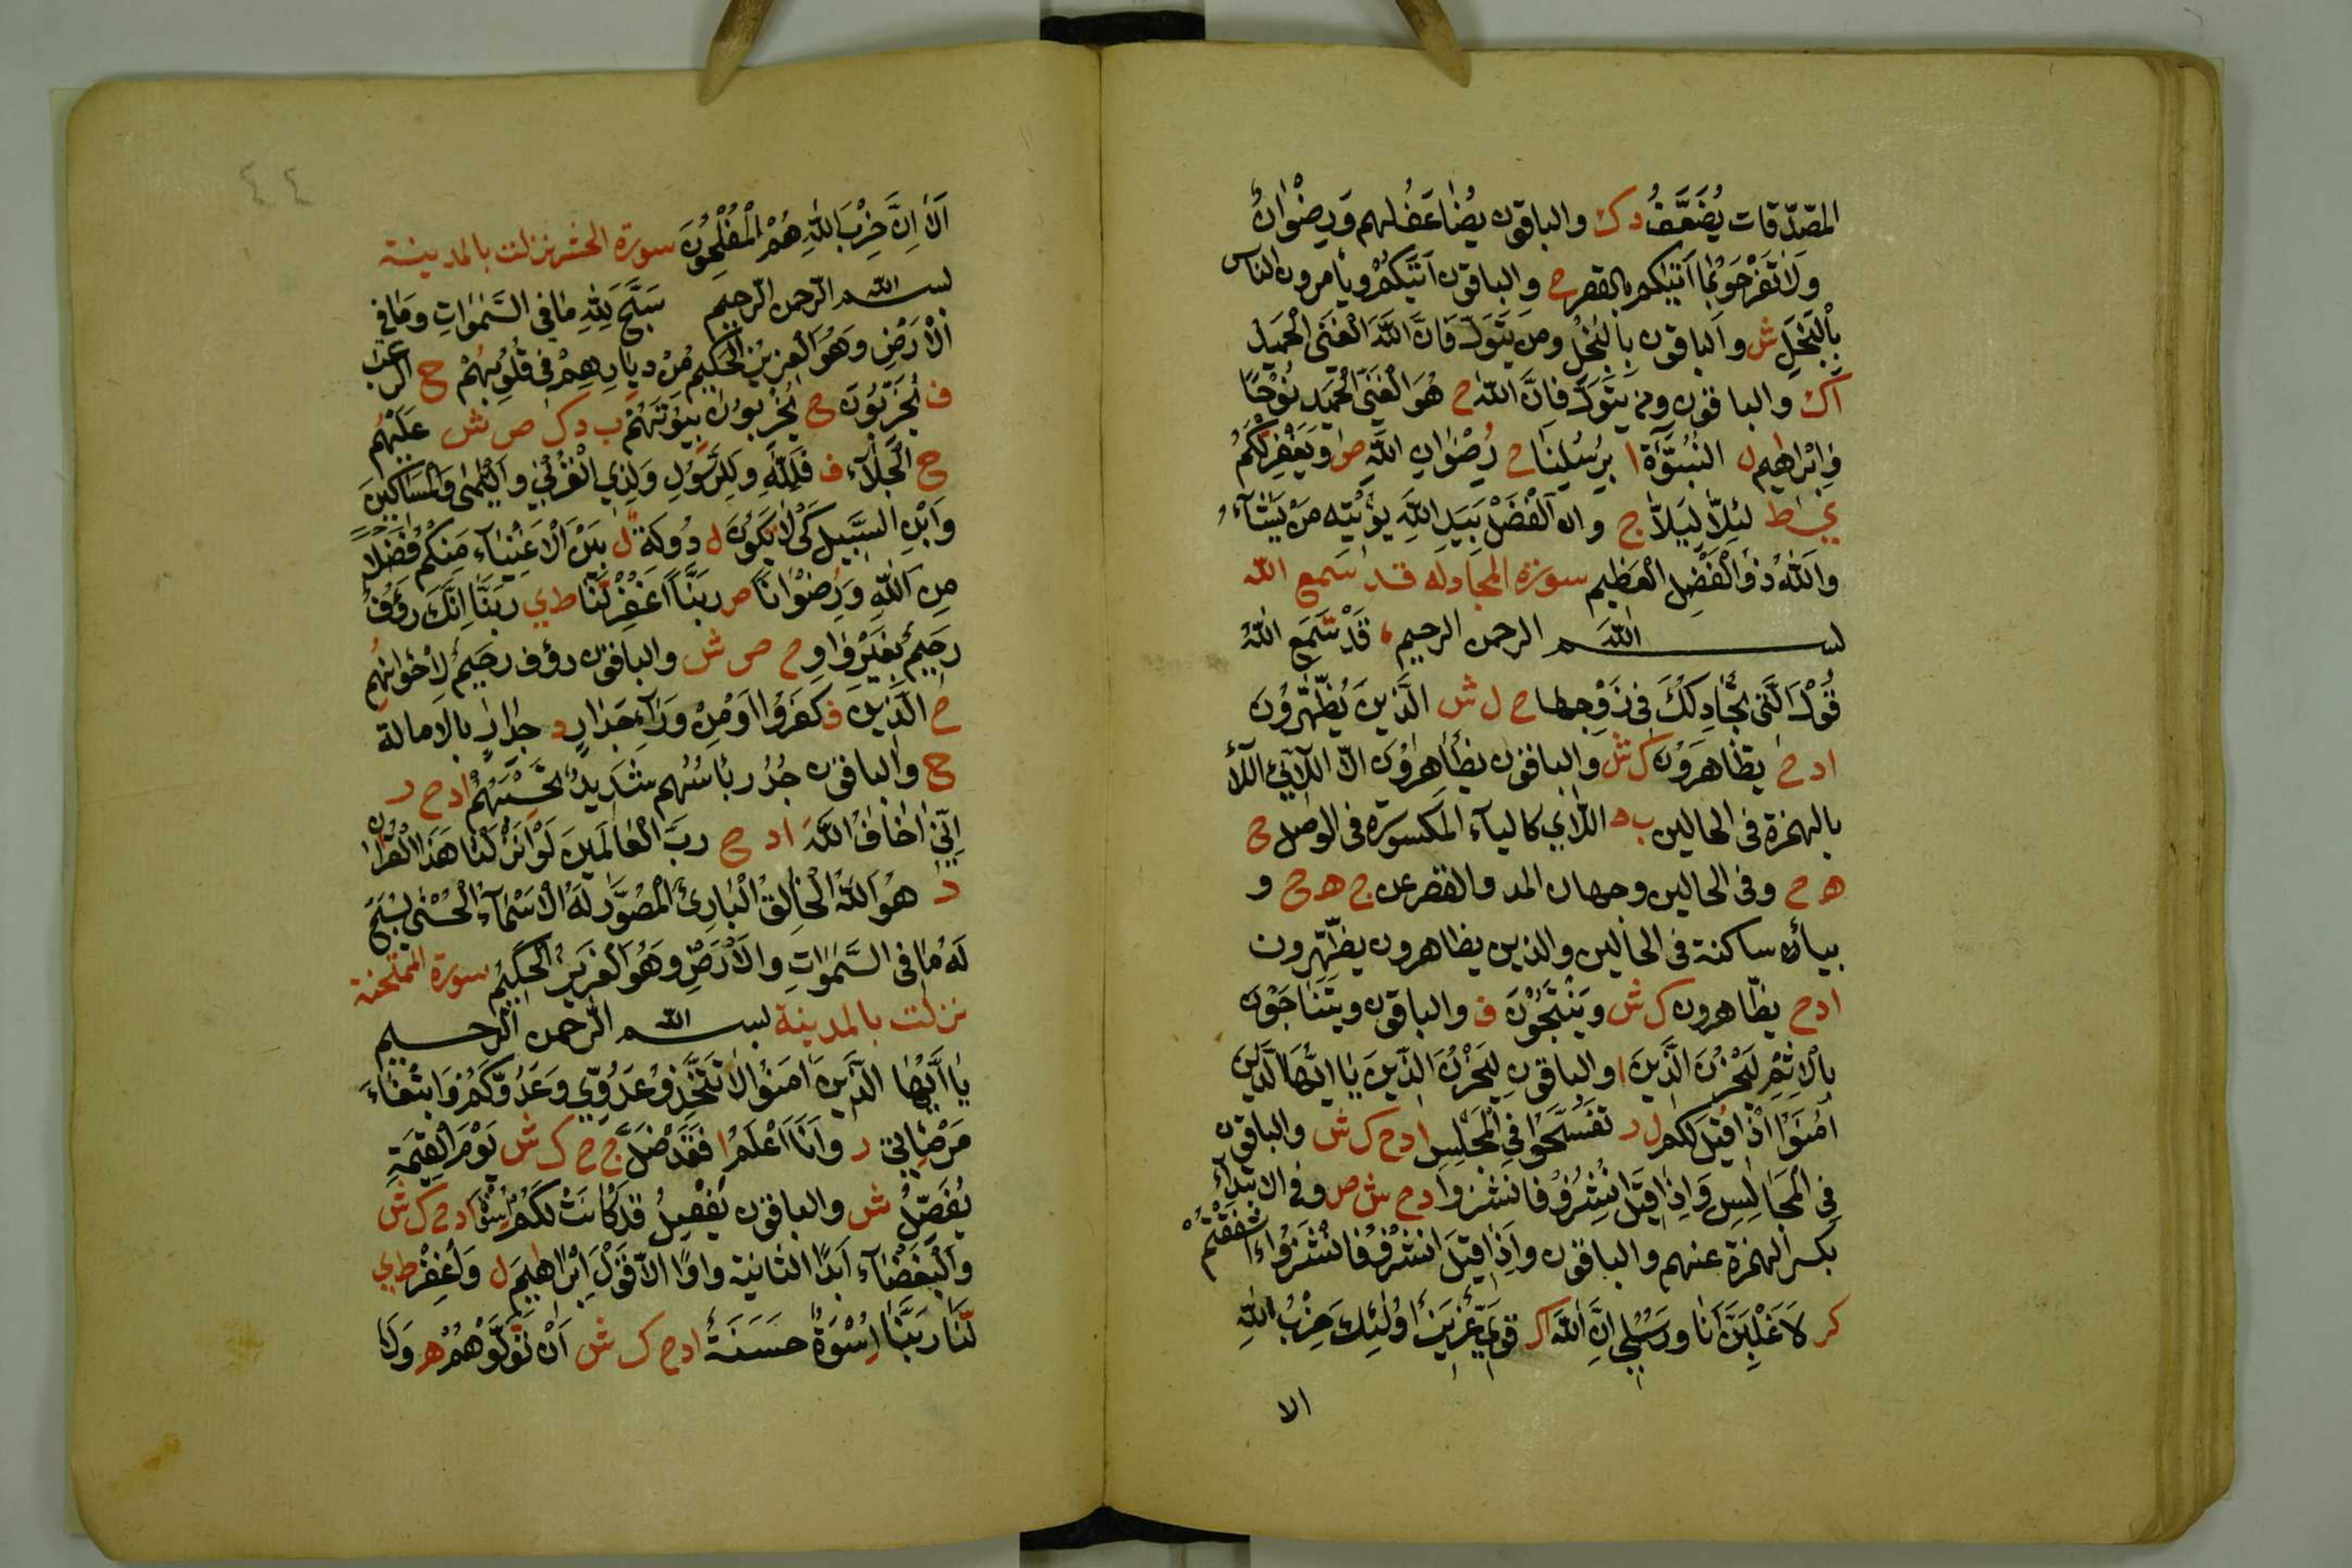 المصّدّقات يُضَعَّفُ دك والباقون يضاعف لهم وَرِضْوَانٌ
وَلَا تَفْرَحُوا بِمَا آتٰيكم بالقصر ح والباقون آتٰيكُمْ ويأمرون الناس
بِالْبَخَلِ ش والباقون بِالْبُخْلِ ومن يَتَوَلَّ فَاِنَّ اللهَ الْغَنِيُّ الْحَمِيدُ
اك والباقون ومن يَتَوَلَّ فَاِنَّ اللهَ ح هُوَ الْغَنِيُّ الْحَمِيدُ نُوْحًا
وَاِبْرَاهِيم ل النُّبُوَّةَ ا بِرُسُلِنَا ح رُضْوَانِ اللهِ ص وَيَغْفِرْ لَكُمْ
ط لِئَلَّا لِيَلَّا ج وان الْفَضْلَ بِيَدِ اللهِ يؤتيه مَنْ يَشَآءُ
وَاللهُ ذُو الْفَضْلِ الْعَظِيم سورة المجادله قد سمع الله
بسم الله الرحمن الرحيم قَدْ سَّمِعَ اللهُ
قَوْلَ الَّتِي تُجَادِلُكَ فِي زَوْجِهَا ح ل ش الَّذِينَ يَظَّهَّرُونَ
ادح يظَّاهَرُونَ ك ش والباقون يُظَاهِرُونَ الا اللَّائِي اللَّا
بالهمزة فى الحالين ب د اللاي كالياء المكسورة فى الوصل ج
ه ح وفى الحالين وجهان المد والقصر عن ج ه ح و
بيأ ساكنة فى الحالين والذين يظاهرون يظَّهَّرون
ادح يظّاهرون ك ش وَيَنْتَجُوْنَ ف والباقون ويَتَنَاجَوْنَ
بالاِثْمِ لِيُحْزِنَ الَّذِينَ ا والباقون لِيَحْزُنَ الَّذِينَ يَا اَيُّهَا الَّذِينَ
آمَنُوا اِذَا قِيْلَ لَكُمْ ل ر تَفَسَّحُوا فِي الْمَجْلِسِ ادح ك ش والباقون
فِي الْمَجَالِسِ وَاِذَا قِيْلَ انْشِزُوْا فانشزوا ادح ش ص وفى الابتدآء
بكسر الهمزة عنهم والباقون وَاِذَا قِيْلَ انْشُزُوْا فَانْشُزُوْا ءَاَشْفَقْتُمْ
كر لَاَغْلِبَنَّ اَنَا وَرُسُلِي اِنَّ اللهَ اك قَوِيٌّ عَزِيزٌ اُولٰئِكَ حِزْبُ اللهِ
الا
٤٤
اَلَا اِنَّ حِزْبَ اللهِ هُمُ الْمُفْلِحُوْنَ سورة الحشر نزلت بالمدينة
بسم الله الرّحمن الرّحيم سَبَّحَ لِلّٰهِ مَا فِي السَّمٰوَاتِ وَمَا فِي
الْاَرْضِ وَهُوَ الْعَزِيْزُ الْحَكِيمُ مِنْ دِيَارِهِمْ فِي قُلُوبِهُمْ ح الرعب
ف يُخَرِّبُوْنَ ح يُخْرِبُوْنَ بِيُوْتَهُمْ ب د ك ص ش عَلَيْهُمُ
ح الْجَلَآءَ ف فَلِلّٰهِ وَلِلرَّسُوْلِ وَلِذِي الْقُرْبٰي وَالْيَتٰمٰى وَالْمَسَاكِيْنَ
وَابْنِ السَّبِيْلِ كَيْ لَا تَكُوْنَ ل دُوْلَةٌ ل بَيْنَ الْاَغْنِيَآءِ مِنْكُمْ فَضْلًا
مِنَ اللهِ وَرُضْوَانًا ص رَبَّنَا اغْفِرْ لَّنَا ط ي رَبَّنَا اِنَّكَ رَؤُفٌ
رَحِيْمٌ بِغَيْرِ وَاوٍ ح ص ش والباقون رؤف رَحِيْمٌ لِاِخْوَانِهُمُ
ح الَّذِيْنَ ف كَفَرُوْا اَوْ مِنْ وَرَآءِ جِدَارٍ د جِدَارٍ بالامالة
ح والباقون جُدُرٍ بَأْسُهُم شَدِيدٌ تَحْسِبُهُمْ ادح ر
اِنِّيَ اَخَافُ اللهَ ادح رَبَّ الْعَالَمِينَ لَوْ اَنْزَلْنَا هَذَا الْقُرَانَ
د هُوَ اللهُ الْخَالِقُ الْبَارِئُ الْمُصَوِّرُ لَهُ الْاَسْمَآءُ الْحُسْنٰى يُسَبِّحُ
لَهُ مَا فِي السَّمٰوَاتِ وَالْاَرْضِ وَهُوَ الْعَزِيزُ الْحَكِيْمُ سورة الممتحنة
نزلت بالمدينة بسم الله الرّحمن الرّحيم
يَا اَيُّهَا الَّذِيْنَ اٰمَنُوْا لَا تَتَّخِذُوْا عَدُوِّي وَعَدُوَّكُمْ وَابْتِغَآءَ
مَرْضَاتِي ر وَاَنَا اَعْلَمُ ا فَقَد ضَّلَّ ج ح ك ش يَوْمَ الْقِيٰمَةِ
يُفَصِّلُ ش والباقون يُفْصَلُ قَدْ كَانَتْ لَكُمْ اِسْوَةٌ ادح ك ش
وَالْبَغْضَآءُ اَبَدًا الثانية واوًا الَّا قَوْلَ اِبْرَاهِيمَ ل وَاغْفِرْ ط ي
لَّنَا رَبَّنَا اِسْوَةٌ حَسَنَةٌ ادح ك ش اَنْ تَّوَلَّوْهُمْ ه وَلَا